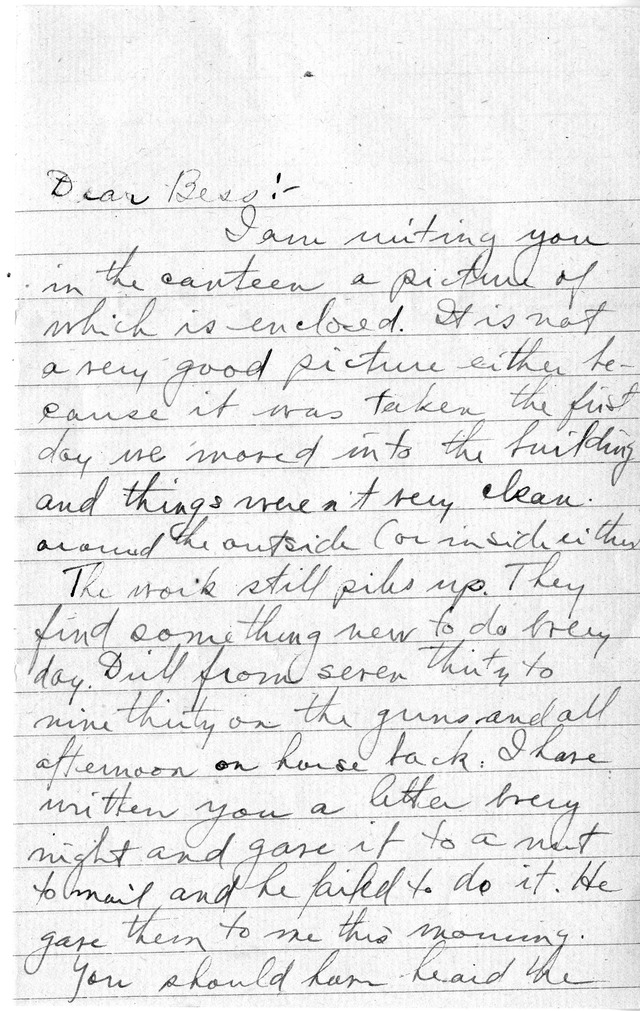 Dear Bess:-
I am writing you
in the canteen a picture of
which is enclosed. It is not
a very good picture either be-
cause it was taken the first
day we moved into the building
and things weren't very clean.
around the outside (or inside either
The work still piles up. They
find something new to do every
day. Drill from seven thirty to
nine thirty on the guns and all
afternoon on horse back. I have
written you a letter every
night and gave it to a nut
to mail and he failed to do it. He
gave them to me this morning.
You should have heard the